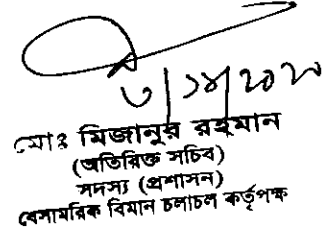 মোঃ মিজানুর রহমান
(অতিরিক্ত সচিব)
সদস্য (প্রশাসন)
বেসামরিক বিমান চলাচল কর্তৃপক্ষ